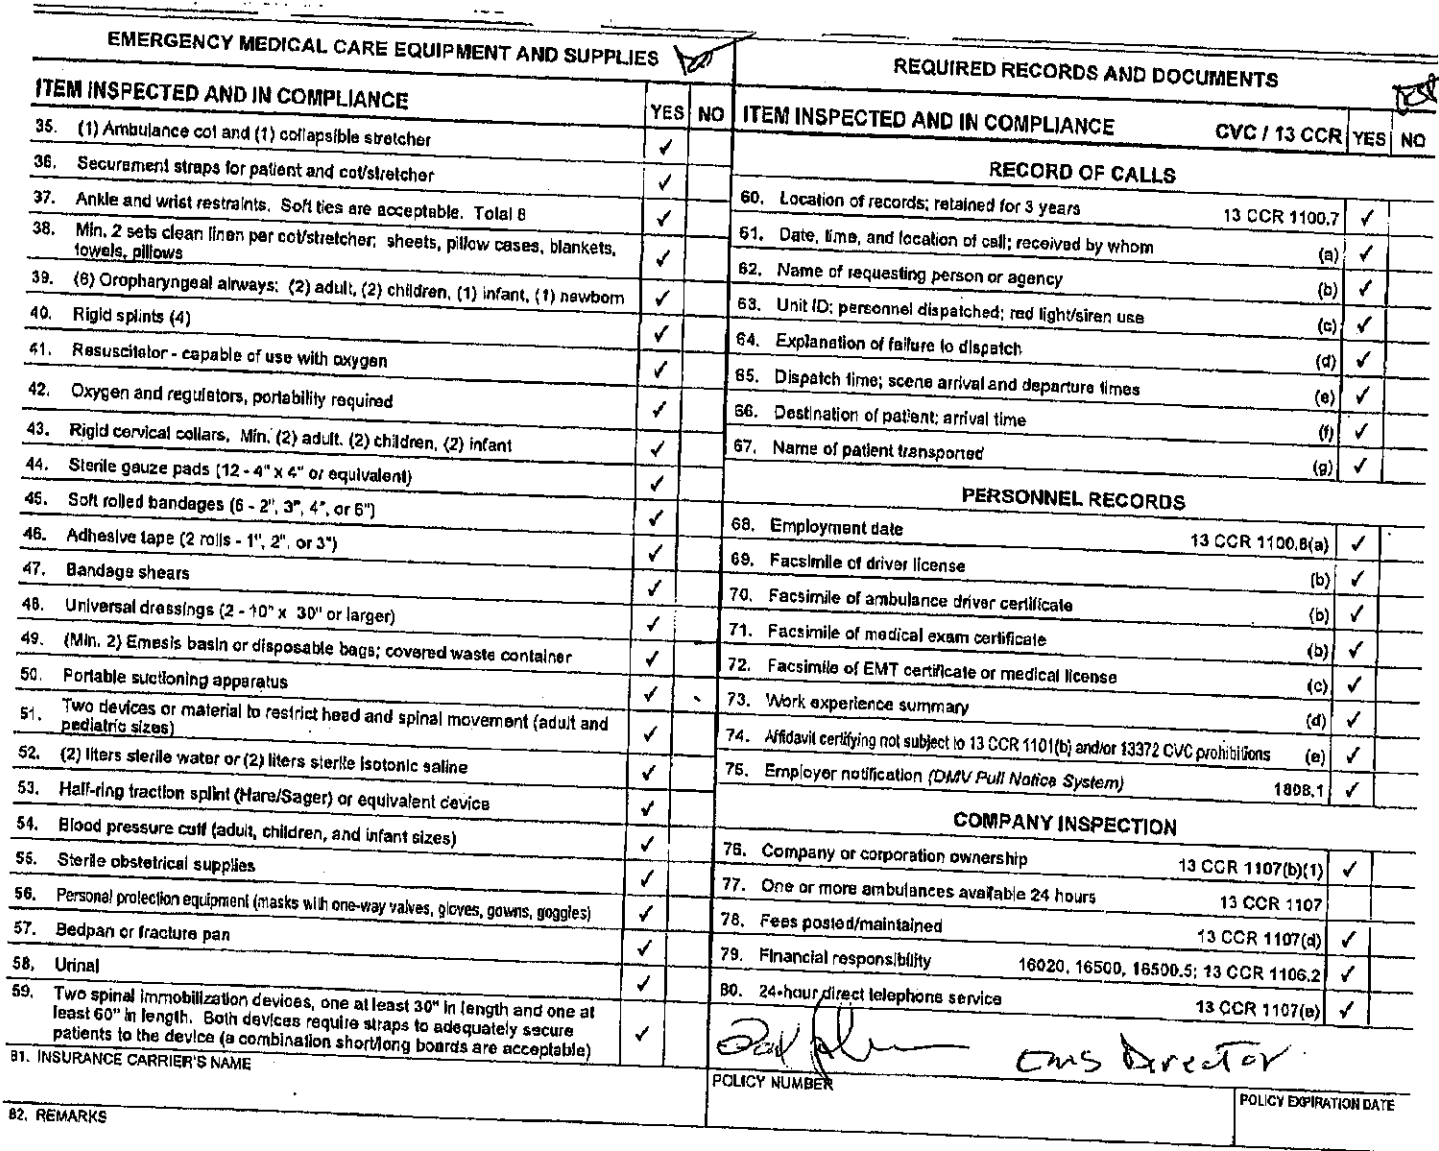 EMERGENCY MEDICAL CARE EQUIPMENT AND SUPPLIES
ITEM INSPECTED AND IN COMPLIANCE YES NO
35. (1) Ambulance cot and (1) collapsible stretcher ✓
36. Securement straps for patient and cot/stretcher ✓
37. Ankle and wrist restraints. Soft ties are acceptable. Total 8 ✓
38. Min. 2 sets clean linen per cot/stretcher; sheets, pillow cases, blankets,
towels, pillows ✓
39. (6) Oropharyngeal airways: (2) adult, (2) children, (1) infant, (1) newborn ✓
40. Rigid splints (4) ✓
41. Resuscitator - capable of use with oxygen ✓
42. Oxygen and regulators, portability required ✓
43. Rigid cervical collars, Min. (2) adult. (2) children, (2) infant ✓
44. Sterile gauze pads (12 - 4" x 4" or equivalent) ✓
45. Soft rolled bandages (6 - 2", 3", 4", or 6") ✓
46. Adhesive tape (2 rolls - 1", 2", or 3") ✓
47. Bandage shears ✓
48. Universal dressings (2 - 10" x 30" or larger) ✓
49. (Min. 2) Emesis basin or disposable bags; covered waste container ✓
50. Portable suctioning apparatus ✓
51. Two devices or material to restrict head and spinal movement (adult and
pediatric sizes) ✓
52. (2) liters sterile water or (2) liters sterile isotonic saline ✓
53. Half-ring traction splint (Hare/Sager) or equivalent device ✓
54. Blood pressure cuff (adult, children, and infant sizes) ✓
55. Sterile obstetrical supplies ✓
56. Personal protection equipment (masks with one-way valves, gloves, gowns, goggles) ✓
57. Bedpan or fracture pan ✓
58. Urinal ✓
59. Two spinal immobilization devices, one at least 30" in length and one at
least 60" in length. Both devices require straps to adequately secure
patients to the device (a combination short/long boards are acceptable) ✓
REQUIRED RECORDS AND DOCUMENTS
ITEM INSPECTED AND IN COMPLIANCE CVC / 13 CCR YES NO
RECORD OF CALLS
60. Location of records; retained for 3 years 13 CCR 1100.7 ✓
61. Date, time, and location of call; received by whom (a) ✓
62. Name of requesting person or agency (b) ✓
63. Unit ID; personnel dispatched; red light/siren use (c) ✓
64. Explanation of failure to dispatch (d) ✓
65. Dispatch time; scene arrival and departure times (e) ✓
66. Destination of patient; arrival time (f) ✓
67. Name of patient transported (g) ✓
PERSONNEL RECORDS
68. Employment date 13 CCR 1100.8(a) ✓
69. Facsimile of driver license (b) ✓
70. Facsimile of ambulance driver certificate (b) ✓
71. Facsimile of medical exam certificate (b) ✓
72. Facsimile of EMT certificate or medical license (c) ✓
73. Work experience summary (d) ✓
74. Affidavit certifying not subject to 13 CCR 1101(b) and/or 13372 CVC prohibitions (e) ✓
75. Employer notification (DMV Pull Notice System) 1808.1 ✓
COMPANY INSPECTION
76. Company or corporation ownership 13 CCR 1107(b)(1) ✓
77. One or more ambulances available 24 hours 13 CCR 1107
78. Fees posted/maintained 13 CCR 1107(d) ✓
79. Financial responsibility 16020, 16500, 16500.5; 13 CCR 1106.2 ✓
80. 24-hour direct telephone service 13 CCR 1107(e) ✓
EMS Director
81. INSURANCE CARRIER'S NAME
POLICY NUMBER
POLICY EXPIRATION DATE
82. REMARKS